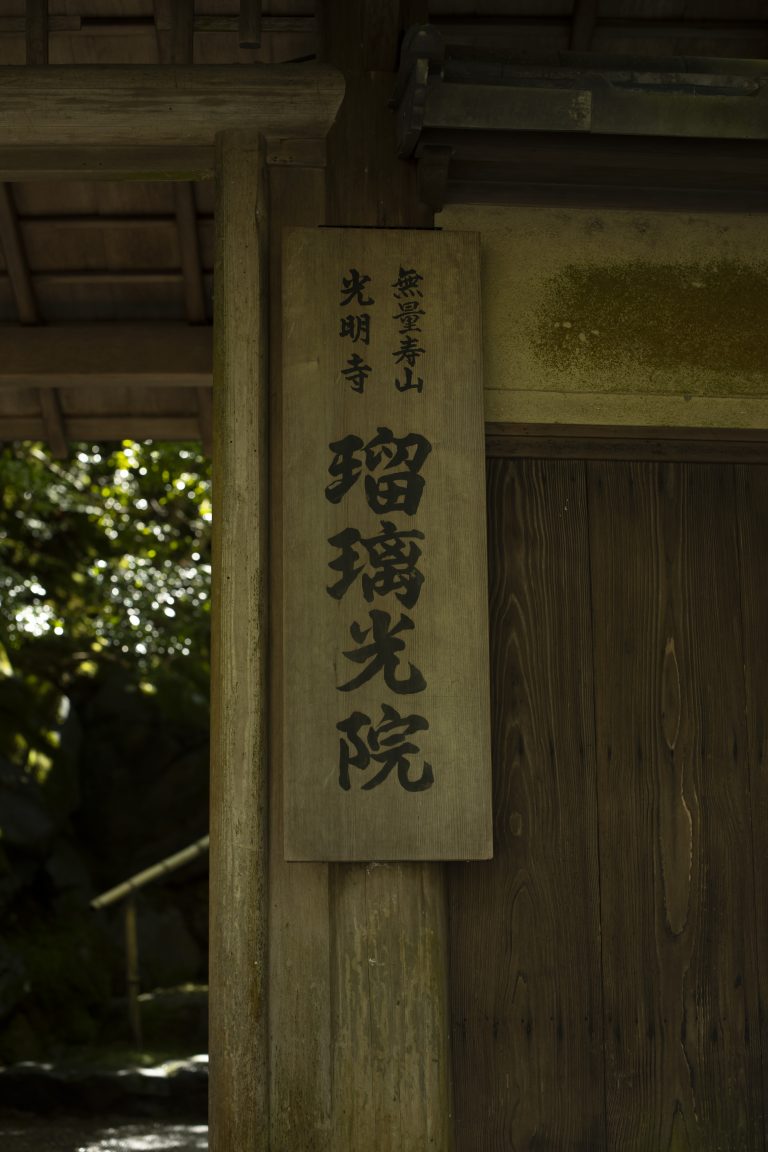 無量寿山
光明寺
瑠璃光院